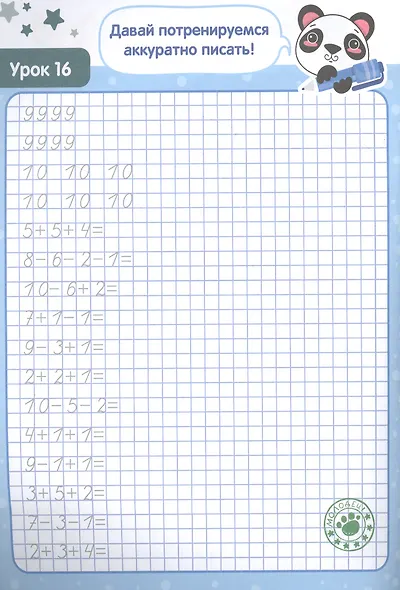 Давай потренируемся
аккуратно писать!
Урок 16
9999
9999
10 10 10
10 10 10
5+5+4=
8-6-2-1=
10-6+2=
7+1-1=
9-3+1=
2+2+1=
10-5-2=
4+1+1=
9-1+1=
3+5+2=
7-3-1=
2+3+4=
МОЛОДЕЦ!